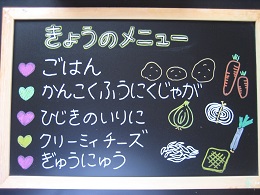 きょうのメニュー
ごはん
かんこくふうにくじゃが
ひじきのいりに
クリーミィチーズ
ぎゅうにゅう